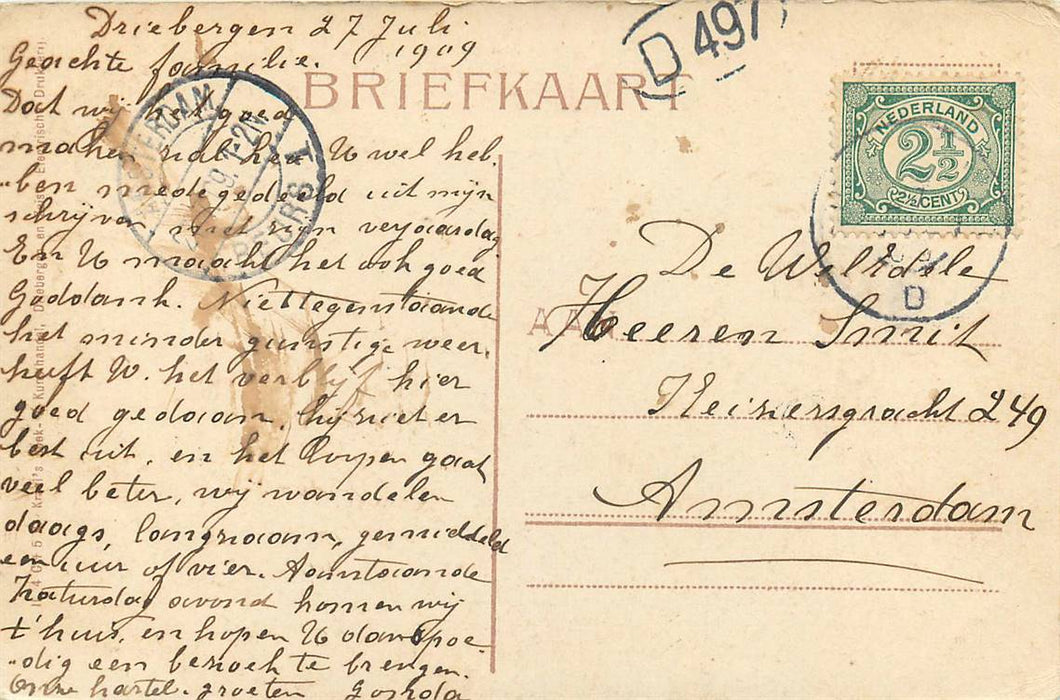 Driebergen 27 Juli
1909
Geachte familie.
Dat wij het goed
maken zal hen U wel heb
"ben medegedeeld uit mijn
schrijven met zijn verjaardag
En U maakt het ook goed
Goddank. Niettegenstaande
het minder gunstige weer,
heeft W. het verblijf hier
goed gedaan, hij ziet er
best uit, en het loopen gaat
veel beter, wij wandelen
daags, langzaam, gemiddeld
een uur of vier. Aanstaande
Zaturdag avond komen wij
t'huis, en hopen U dan spoe
"dig een bezoek te brengen.
Onze hartel. groeten
BRIEFKAART
D 497
NEDERLAND
2½
2½ CENT
AMSTERDAM
1-2N
D
AAN
De WelEdele
Heeren Smit
Keizersgracht 249
Amsterdam